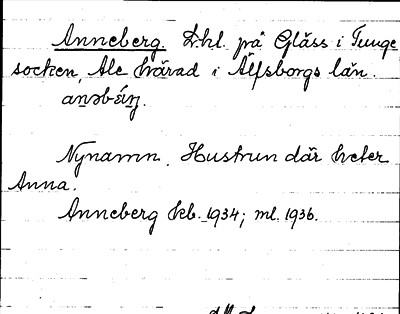 Anneberg. Lhl. på Gläss i Tunge
socken, Ale härad i Älfsborgs län.
Nynamn. Hustrun där heter
Anna.
Anneberg kb. 1934; ml. 1936.